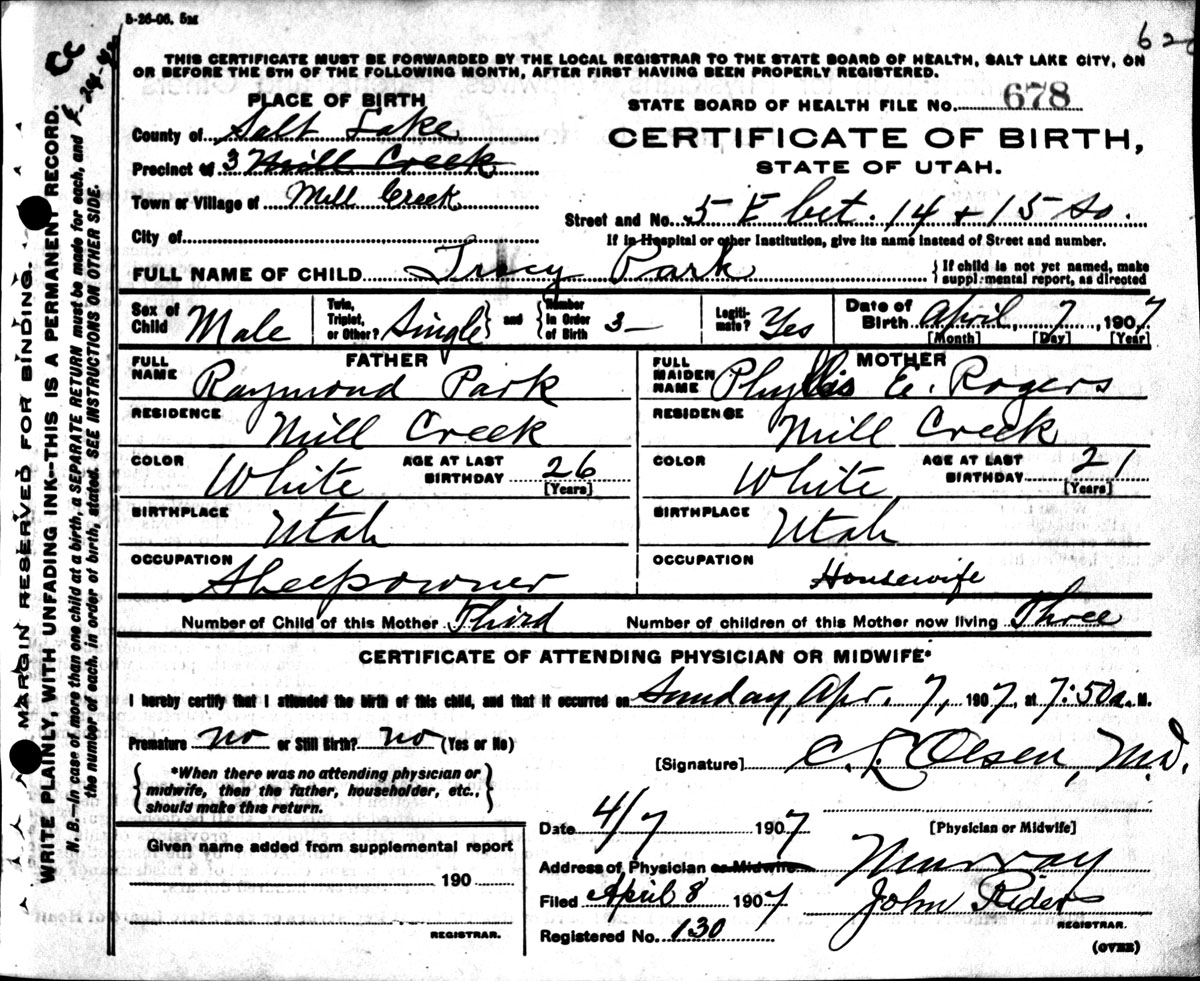 5-26-06. 5M
THIS CERTIFICATE MUST BE FORWARDED BY THE LOCAL REGISTRAR TO THE STATE BOARD OF HEALTH, SALT LAKE CITY, ON
OR BEFORE THE 5TH OF THE FOLLOWING MONTH, AFTER FIRST HAVING BEEN PROPERLY REGISTERED.
PLACE OF BIRTH
STATE BOARD OF HEALTH FILE NO. 678
County of Salt Lake
CERTIFICATE OF BIRTH,
Precinct of 3 Mill Creek
STATE OF UTAH.
Town or Village of Mill Creek
Street and No. 5 E bet. 14 + 15 So.
City of
If in Hospital or other Institution, give its name instead of Street and number.
FULL NAME OF CHILD Tracy Park
If child is not yet named, make
supplemental report, as directed
Sex of Child Male
Twin, Triplet, or Other? Single and Number in Order of Birth 3
Legitimate? Yes
Date of Birth April 7, 1907
[Month] [Day] [Year]
FATHER
FULL NAME Raymond Park
RESIDENCE Mill Creek
COLOR White AGE AT LAST BIRTHDAY 26
[Years]
BIRTHPLACE Utah
OCCUPATION Sheepowner
MOTHER
FULL MAIDEN NAME Phyllis E. Rogers
RESIDENCE Mill Creek
COLOR White AGE AT LAST BIRTHDAY 21
[Years]
BIRTHPLACE Utah
OCCUPATION Housewife
Number of Child of this Mother Third Number of children of this Mother now living Three
CERTIFICATE OF ATTENDING PHYSICIAN OR MIDWIFE*
I hereby certify that I attended the birth of this child, and that it occurred on Sunday, Apr. 7, 1907, at 7:50 a. M.
Premature no or Still Birth? no (Yes or No)
[Signature] C. L. Olsen, M.D.
*When there was no attending physician or
midwife, then the father, householder, etc.,
should make this return.
Date 4/7 1907
[Physician or Midwife]
Given name added from supplemental report
190
REGISTRAR.
Address of Physician or Midwife Murray
Filed April 8 1907 John Riders
REGISTRAR.
Registered No. 130
(OVER)
MARGIN RESERVED FOR BINDING.
WRITE PLAINLY, WITH UNFADING INK—THIS IS A PERMANENT RECORD.
N. B.—In case of more than one child at a birth, a SEPARATE RETURN must be made for each, and
the number of each, in order of birth, stated. SEE INSTRUCTIONS ON OTHER SIDE.